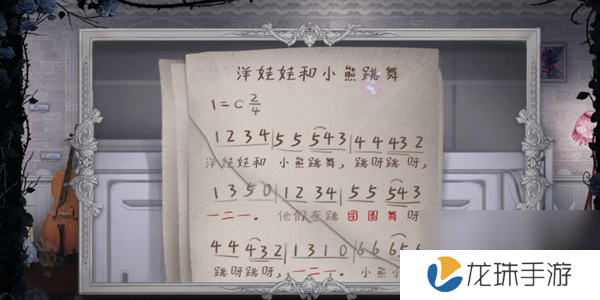 洋娃娃和小熊跳舞
1=C 2/4
1 2 3 4 | 5 5 5 4 3 | 4 4 4 3 2
洋娃娃和 小熊跳舞，跳呀跳呀，
1 3 5 0 | 1 2 3 4 | 5 5 5 4 3
一二一。他们在跳 圆圈舞呀
4 4 4 3 2 | 1 3 1 0 | 6 6 6 5
跳呀跳呀，一二一。小熊小
龙珠手游